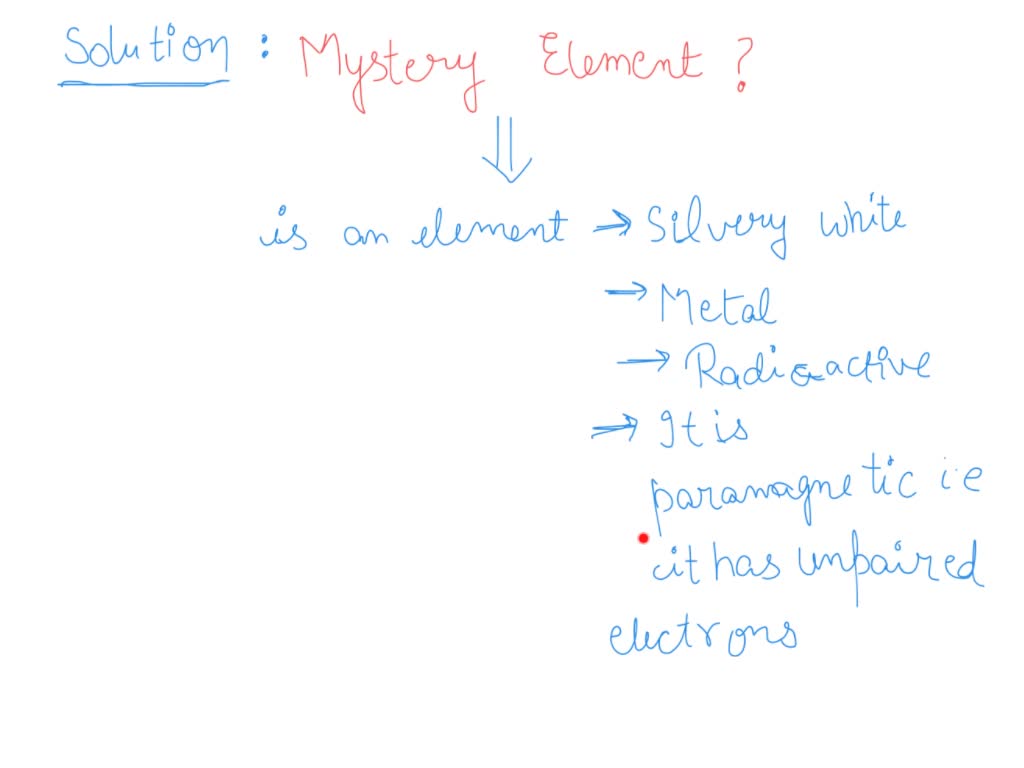 Solution : Mystery Element ?
is an element → Silvery white
→ Metal
→ Radioactive
→ It is
paramagnetic i.e
it has unpaired
electrons